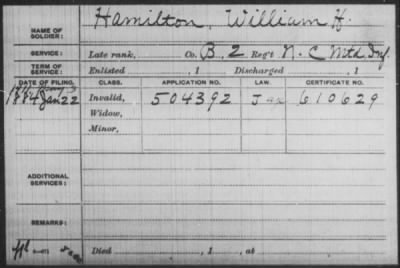 NAME OF SOLDIER: Hamilton, William H.
SERVICE: Late rank, Co. B, 2 Reg't N. C Mtd Inf.
TERM OF SERVICE: Enlisted , 1 Discharged , 1
DATE OF FILING. CLASS. APPLICATION NO. LAW. CERTIFICATE NO.
1884 Jan 22 Invalid, 504392 610629
Widow,
Minor,
ADDITIONAL SERVICES:
REMARKS:
Died , 1 , at